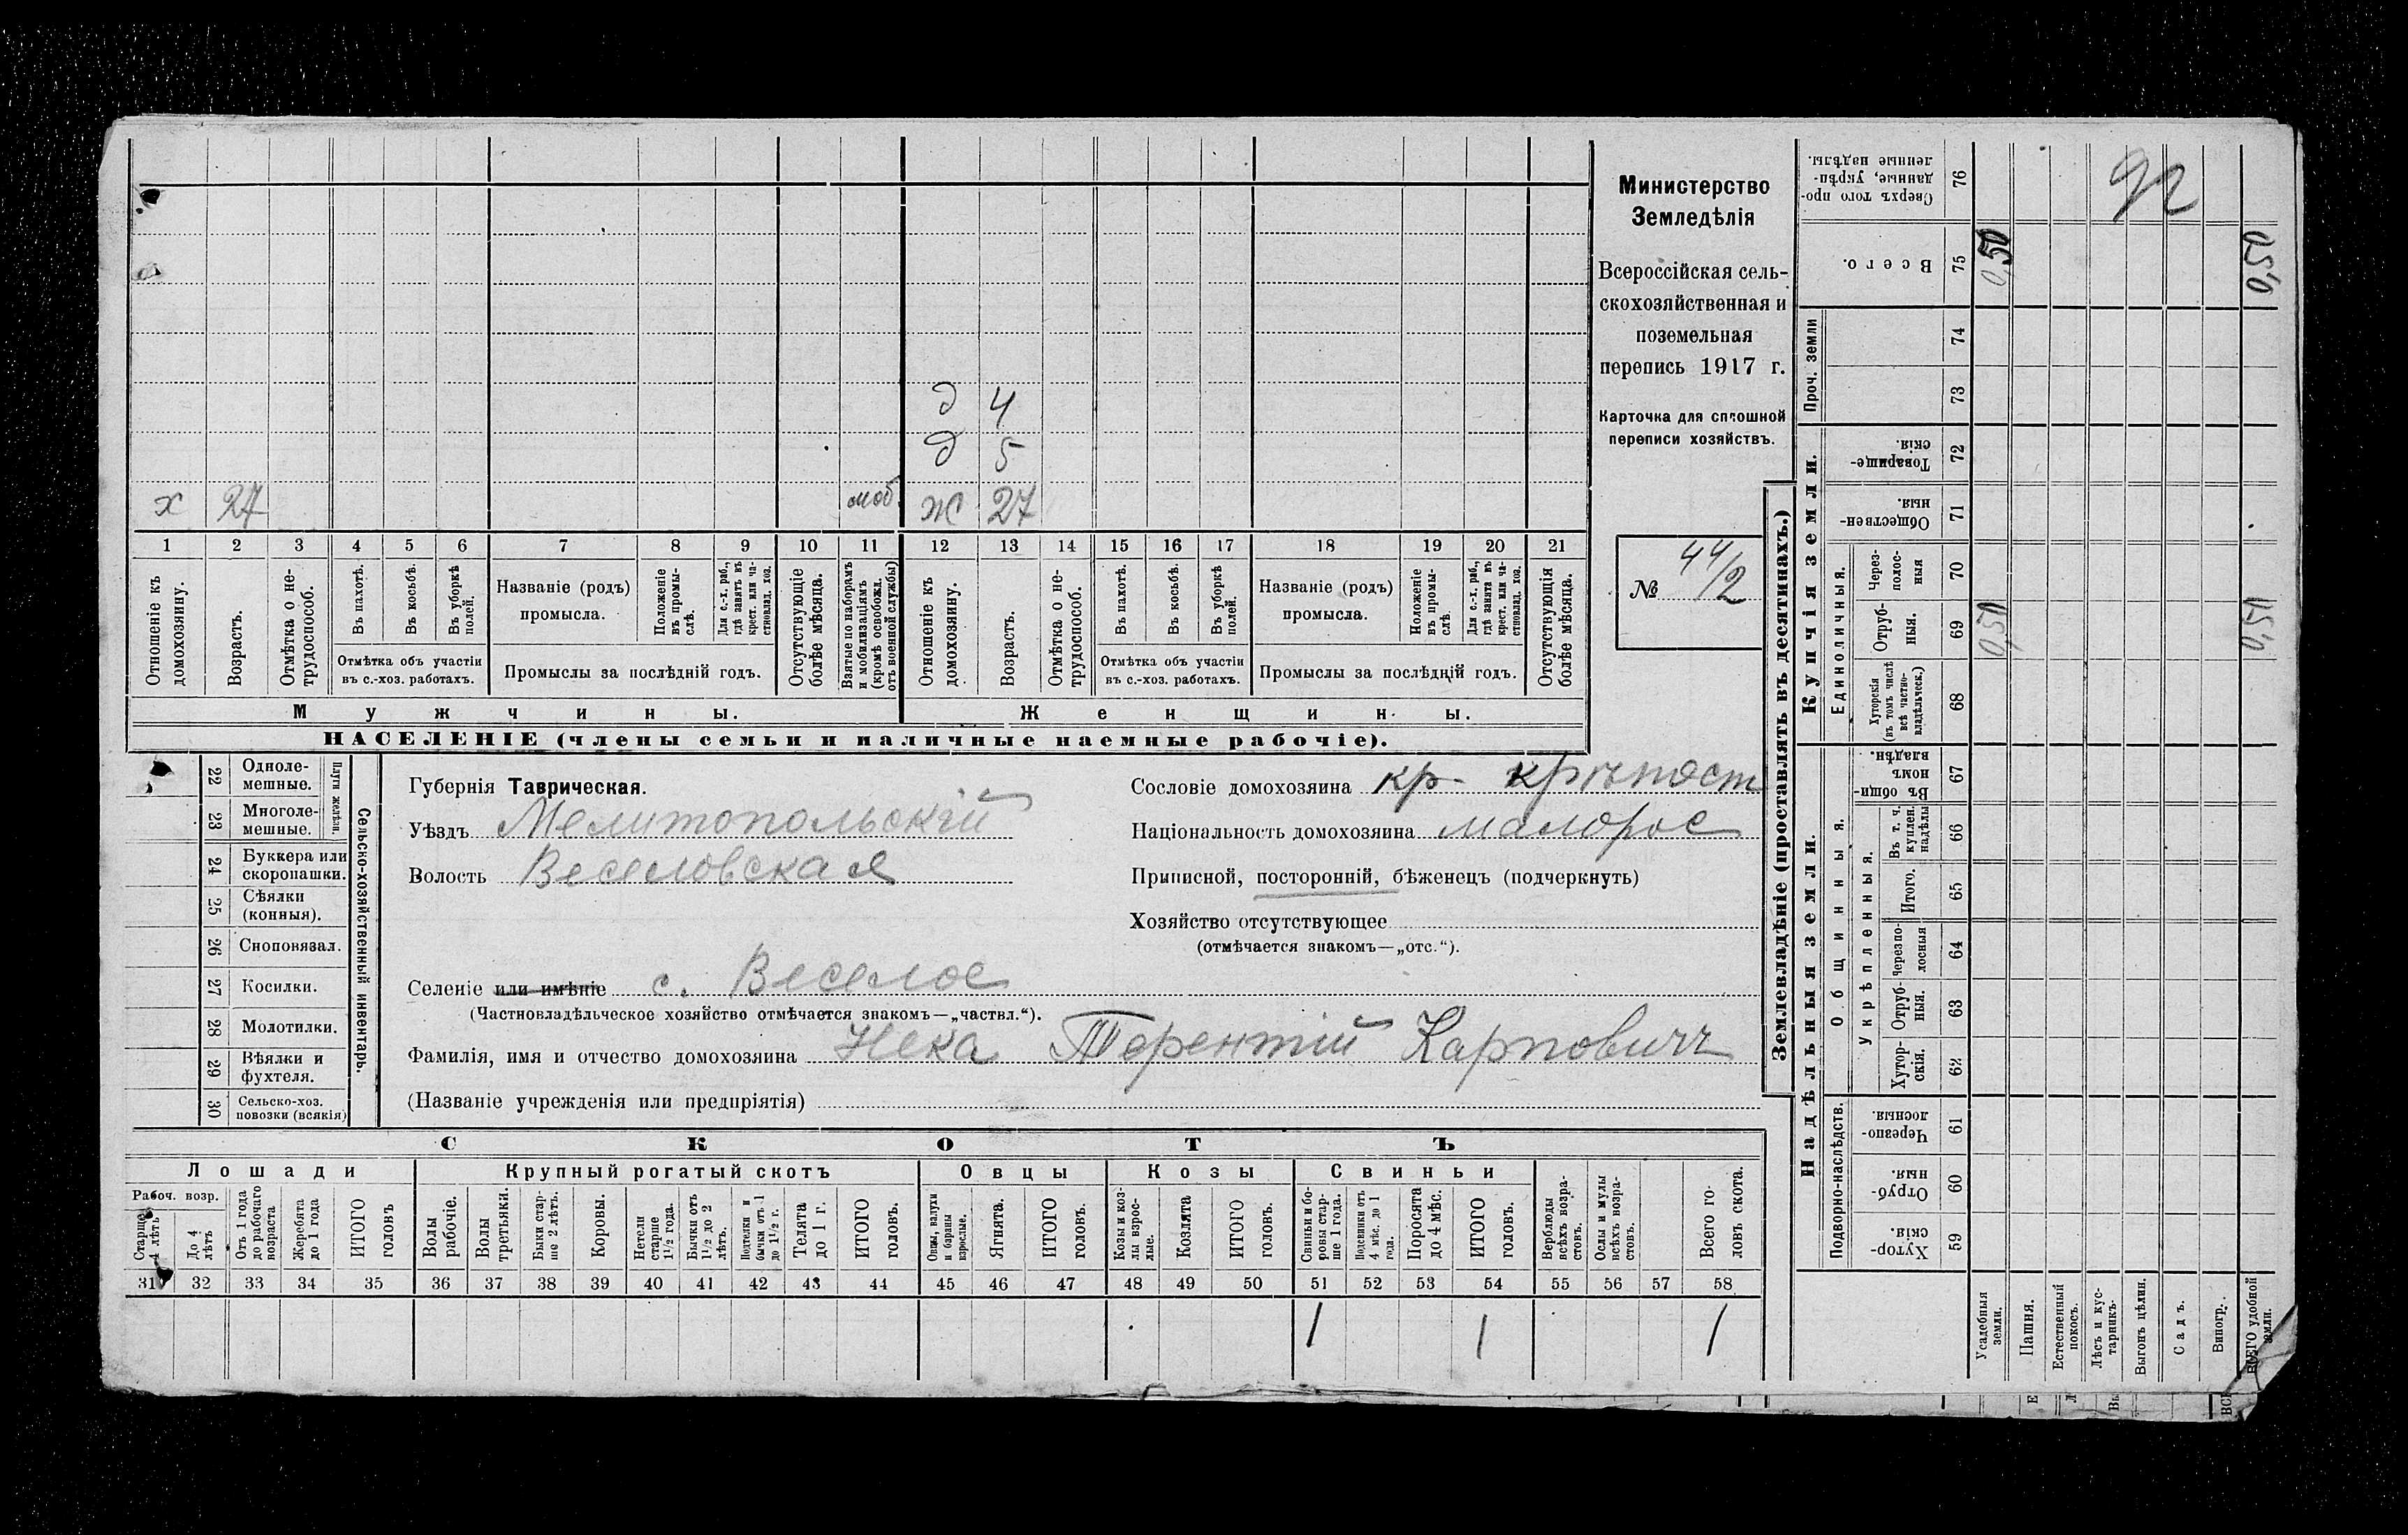 Министерство
Земледѣлія
Всероссійская сель-
скохозяйственная и
поземельная
перепись 1917 г.
Карточка для сплошной
переписи хозяйствъ.
№ 44/2
д 4
д 5
х 27 моб. ж 27
1 2 3 4 5 6 7 8 9 10 11 12 13 14 15 16 17 18 19 20 21
Отношеніе къ домохозяину.
Возрастъ.
Отмѣтка о не-трудоспособ.
Въ пахотѣ.
Въ косьбѣ.
Въ уборкѣ полей.
Отмѣтка объ участіи
въ с.-хоз. работахъ.
Названіе (родъ)
промысла.
Положеніе въ промы-слѣ.
Для с.-х. раб., гдѣ занятъ въ крест. или ча-стновлад. хоз.
Промыслы за послѣдній годъ.
Отсутствующіе болѣе мѣсяца.
Взятые по наборамъ и мобилизаціямъ (кромѣ освобожд. отъ военной службы)
Отношеніе къ домохозяину.
Возрастъ.
Отмѣтка о не-трудоспособ.
Въ пахотѣ.
Въ косьбѣ.
Въ уборкѣ полей.
Отмѣтка объ участіи
въ с.-хоз. работахъ.
Названіе (родъ)
промысла.
Положеніе въ промы-слѣ
Для с.-х. раб., гдѣ занята въ крест. или ча-стновлад. хоз.
Промыслы за послѣдній годъ.
Отсутствующія болѣе мѣсяца.
Мужчины. Женщины.
НАСЕЛЕНІЕ (члены семьи и наличные наемные рабочіе).
22 Одноле-мешные.
23 Многоле-мешные.
Плуги желѣзн.
24 Буккера или скоропашки.
25 Сѣялки (конныя).
26 Сноповязал.
27 Косилки.
28 Молотилки.
29 Вѣялки и фухтеля.
30 Сельско-хоз. повозки (всякія)
Сельско-хозяйственный инвентарь.
Губернія Таврическая.
Уѣздъ Мелитопольскій
Волость Веселовская
Сословіе домохозяина кр.
Національность домохозяина малорос
Приписной, посторонній, бѣженецъ (подчеркнуть)
Хозяйство отсутствующее
(отмѣчается знакомъ—„отс.“).
Селеніе или имѣніе с. Веселое
(Частновладѣльческое хозяйство отмѣчается знакомъ—„частвл.“).
Фамилія, имя и отчество домохозяина Нека Терентій Карповичъ
(Названіе учрежденія или предпріятія)
СКОТЪ
Лошади Крупный рогатый скотъ Овцы Козы Свиньи
Рабоч. возр.
Старше 4 лѣтъ
До 4 лѣтъ
Отъ 1 года до рабочаго возраста
Жеребята до 1 года
ИТОГО головъ
Волы рабочіе.
Волы третьяки.
Быки стар-ше 2 лѣтъ.
Коровы.
Нетели старше 1½ года.
Бычки отъ 1½ до 2 лѣтъ.
Подтелки и бычки отъ 1 до 1½ г.
Телята до 1 г.
ИТОГО головъ.
Овцы, валухи и бараны взрослые.
Ягнята.
ИТОГО головъ.
Козы и коз-лы взрос-лые.
Козлята
ИТОГО головъ.
Свиньи и бо-ровы стар-ше 1 года.
Подсвинки отъ 4 мѣс. до 1 года.
Поросята до 4 мѣс.
ИТОГО головъ.
Верблюды всѣхъ возра-стовъ.
Ослы и мулы всѣхъ возра-стовъ.
Всего го-ловъ скота.
31 32 33 34 35 36 37 38 39 40 41 42 43 44 45 46 47 48 49 50 51 52 53 54 55 56 57 58
1 1 1
Землевладѣніе (проставлять въ десятинахъ.)
Купчія земли.
Надѣльныя земли.
Сверхъ того про-данные, укрѣп-ленные надѣлы. 76
92
Всего. 75 0,50 0,50
Проч. земли 74 73
Товарище-скія. 72
Обществен-ныя. 71
Единоличныя.
Через-полос-ныя 70
Отруб-ныя. 69 0,50 0,50
Хуторскія (въ томъ числѣ всѣ частно-владѣльческ.) 68
Въ общи-номъ владѣн. 67
Общинныя.
Укрѣпленныя.
Въ т. ч. куплен. надѣлы 66
Итого. 65
Черезпо-лосныя 64
Отруб-ныя. 63
Хутор-скія. 62
Подворно-наслѣдств.
Черезпо-лосныя. 61
Отруб-ныя. 60
Хутор-скія. 59
Усадебныя земли.
Пашня.
Естественный покосъ.
Лѣсъ и кус-тарникъ.
Выгонъ цѣлин.
Садъ.
Виногр.
ВСЕГО удобной земли.